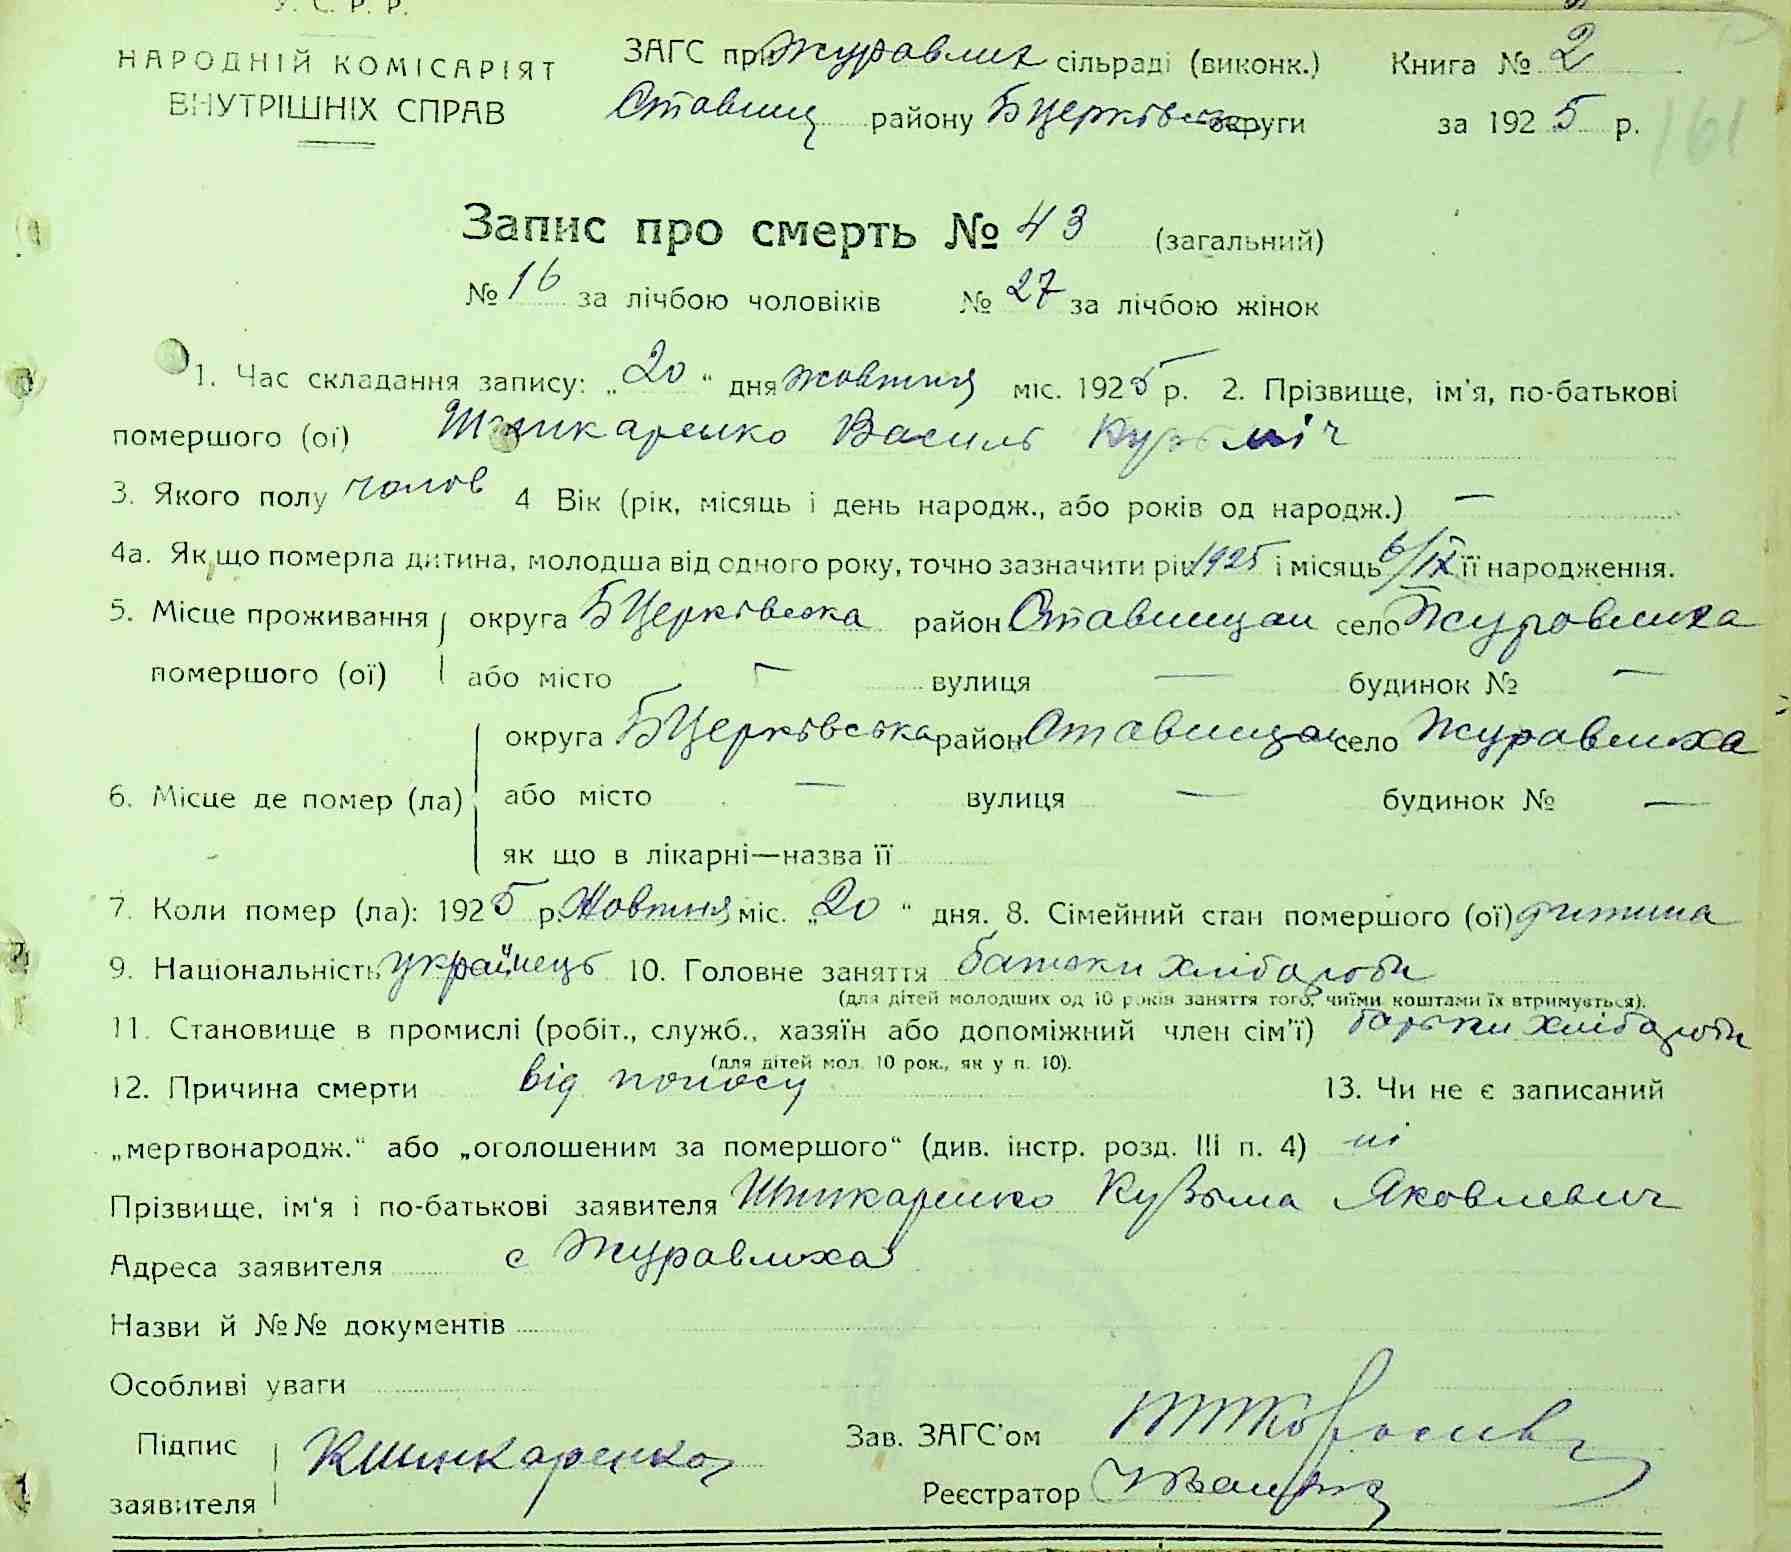 У. С. Р. Р.
НАРОДНІЙ КОМІСАРІЯТ
ВНУТРІШНІХ СПРАВ
ЗАГС при Журавлих сільраді (виконк.) Книга № 2
Ставищ району БЦерківськ округи за 1925 р.
161
Запис про смерть № 43 (загальний)
№ 16 за лічбою чоловіків № 27 за лічбою жінок
1. Час складання запису: „20“ дня жовтня міс. 1925 р. 2. Прізвище, ім'я, по-батькові
помершого (ої) Шинкаренко Василь Кузьміч
3. Якого полу чолов 4 Вік (рік, місяць і день народж., або років од народж.) —
4а. Як що померла дитина, молодша від одного року, точно зазначити рік 1925 і місяць 6/IX її народження.
5. Місце проживання округа БЦерківська район Ставищан село Журовлиха
помершого (ої) або місто — вулиця — будинок № —
округа БЦерківська район Ставищан село Журавлиха
6. Місце де помер (ла) або місто — вулиця — будинок № —
як що в лікарні—назва її
7. Коли помер (ла): 1925 р. Жовтня міс. „20“ дня. 8. Сімейний стан помершого (ої) дитина
9. Національність українець 10. Головне заняття батьки хлібороби
(для дітей молодших од 10 років заняття того, чиїми коштами їх втримується).
11. Становище в промислі (робіт., служб., хазяїн або допоміжний член сім'ї) батьки хлібороби
(для дітей мол. 10 рок., як у п. 10).
12. Причина смерти від поносу 13. Чи не є записаний
„мертвонародж.“ або „оголошеним за помершого“ (див. інстр. розд. III п. 4) ні
Прізвище, ім'я і по-батькові заявителя Шинкаренко Кузьма Яковлевич
Адреса заявителя с Журавлиха
Назви й №№ документів
Особливі уваги
Підпис заявителя КШинкаренко
Зав. ЗАГС'ом
Реєстратор